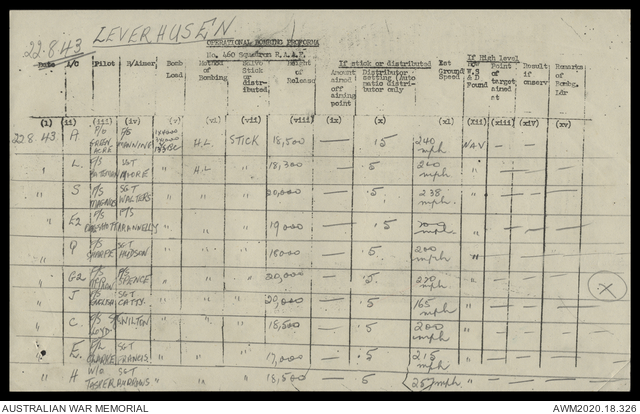 22.8.43 LEVERHUSEN
OPERATIONAL BOMBING PROFORMA
No. 460 Squadron R.A.A.F.
If stick or distributed
If High level
Date A/C Pilot B/Aimer Bomb Load Method of Bombing Salvo Stick or distributed. Height of Release Amount aimed off aiming point Distributor setting (Auto matic distributor only Est Ground Speed How W.S & D Found Point of target aimed at Result if conserv. Remarks of Bombg. Ldr
(i) (ii) (iii) (iv) (v) (vi) (vii) (viii) (ix) (x) (xi) (xii) (xiii) (xiv) (xv)
22.8.43. A P/O GREENACRE F/S MANNING H.L. STICK 18,500 — .5 240 mph NAV — — —
" L. F/S BATEMAN SGT MOORE " H.L " 18,300 — .5 mph. " — — —
" S F/S SGT WALTERS " " " 20,000 — .5 238 mph. " — — —
" E2 F/S F/S " " " 19,000 — .5 mph. " — — —
" Q F/S SHARPE SGT HUDSON " " " 18000 — .5 200 mph. " — — —
" G2 F/S SPENCE " " " 20,000 — .5 mph " — — — X
" J F/S SGT CATTY. " " " 20,000 — .5 165 mph " — — —
" C. F/S LLOYD " " " 18,500 — .5 200 mph " — — —
" E. F/L CLARKE SGT FRANCIS. " " " 17,000 — .5 215 mph " — — —
" H W/O TASKER SGT BURROWS " " " 18,500 — 5 257 mph " — — —
AUSTRALIAN WAR MEMORIAL
AWM2020.18.326